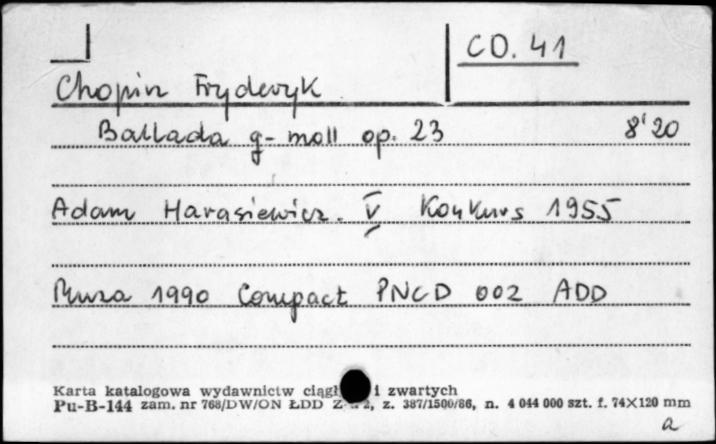 CD. 41
Chopin Fryderyk
Ballada g-moll op. 23 8'20
Adam Harasiewicz. V Konkurs 1955
Muza 1990 Compact PNCD 002 ADD
Karta katalogowa wydawnictw ciągł i zwartych
Pu-B-144 zam. nr 768/DW/ON ŁDD 2, z. 387/1500/86, n. 4 044 000 szt. f. 74×120 mm
a